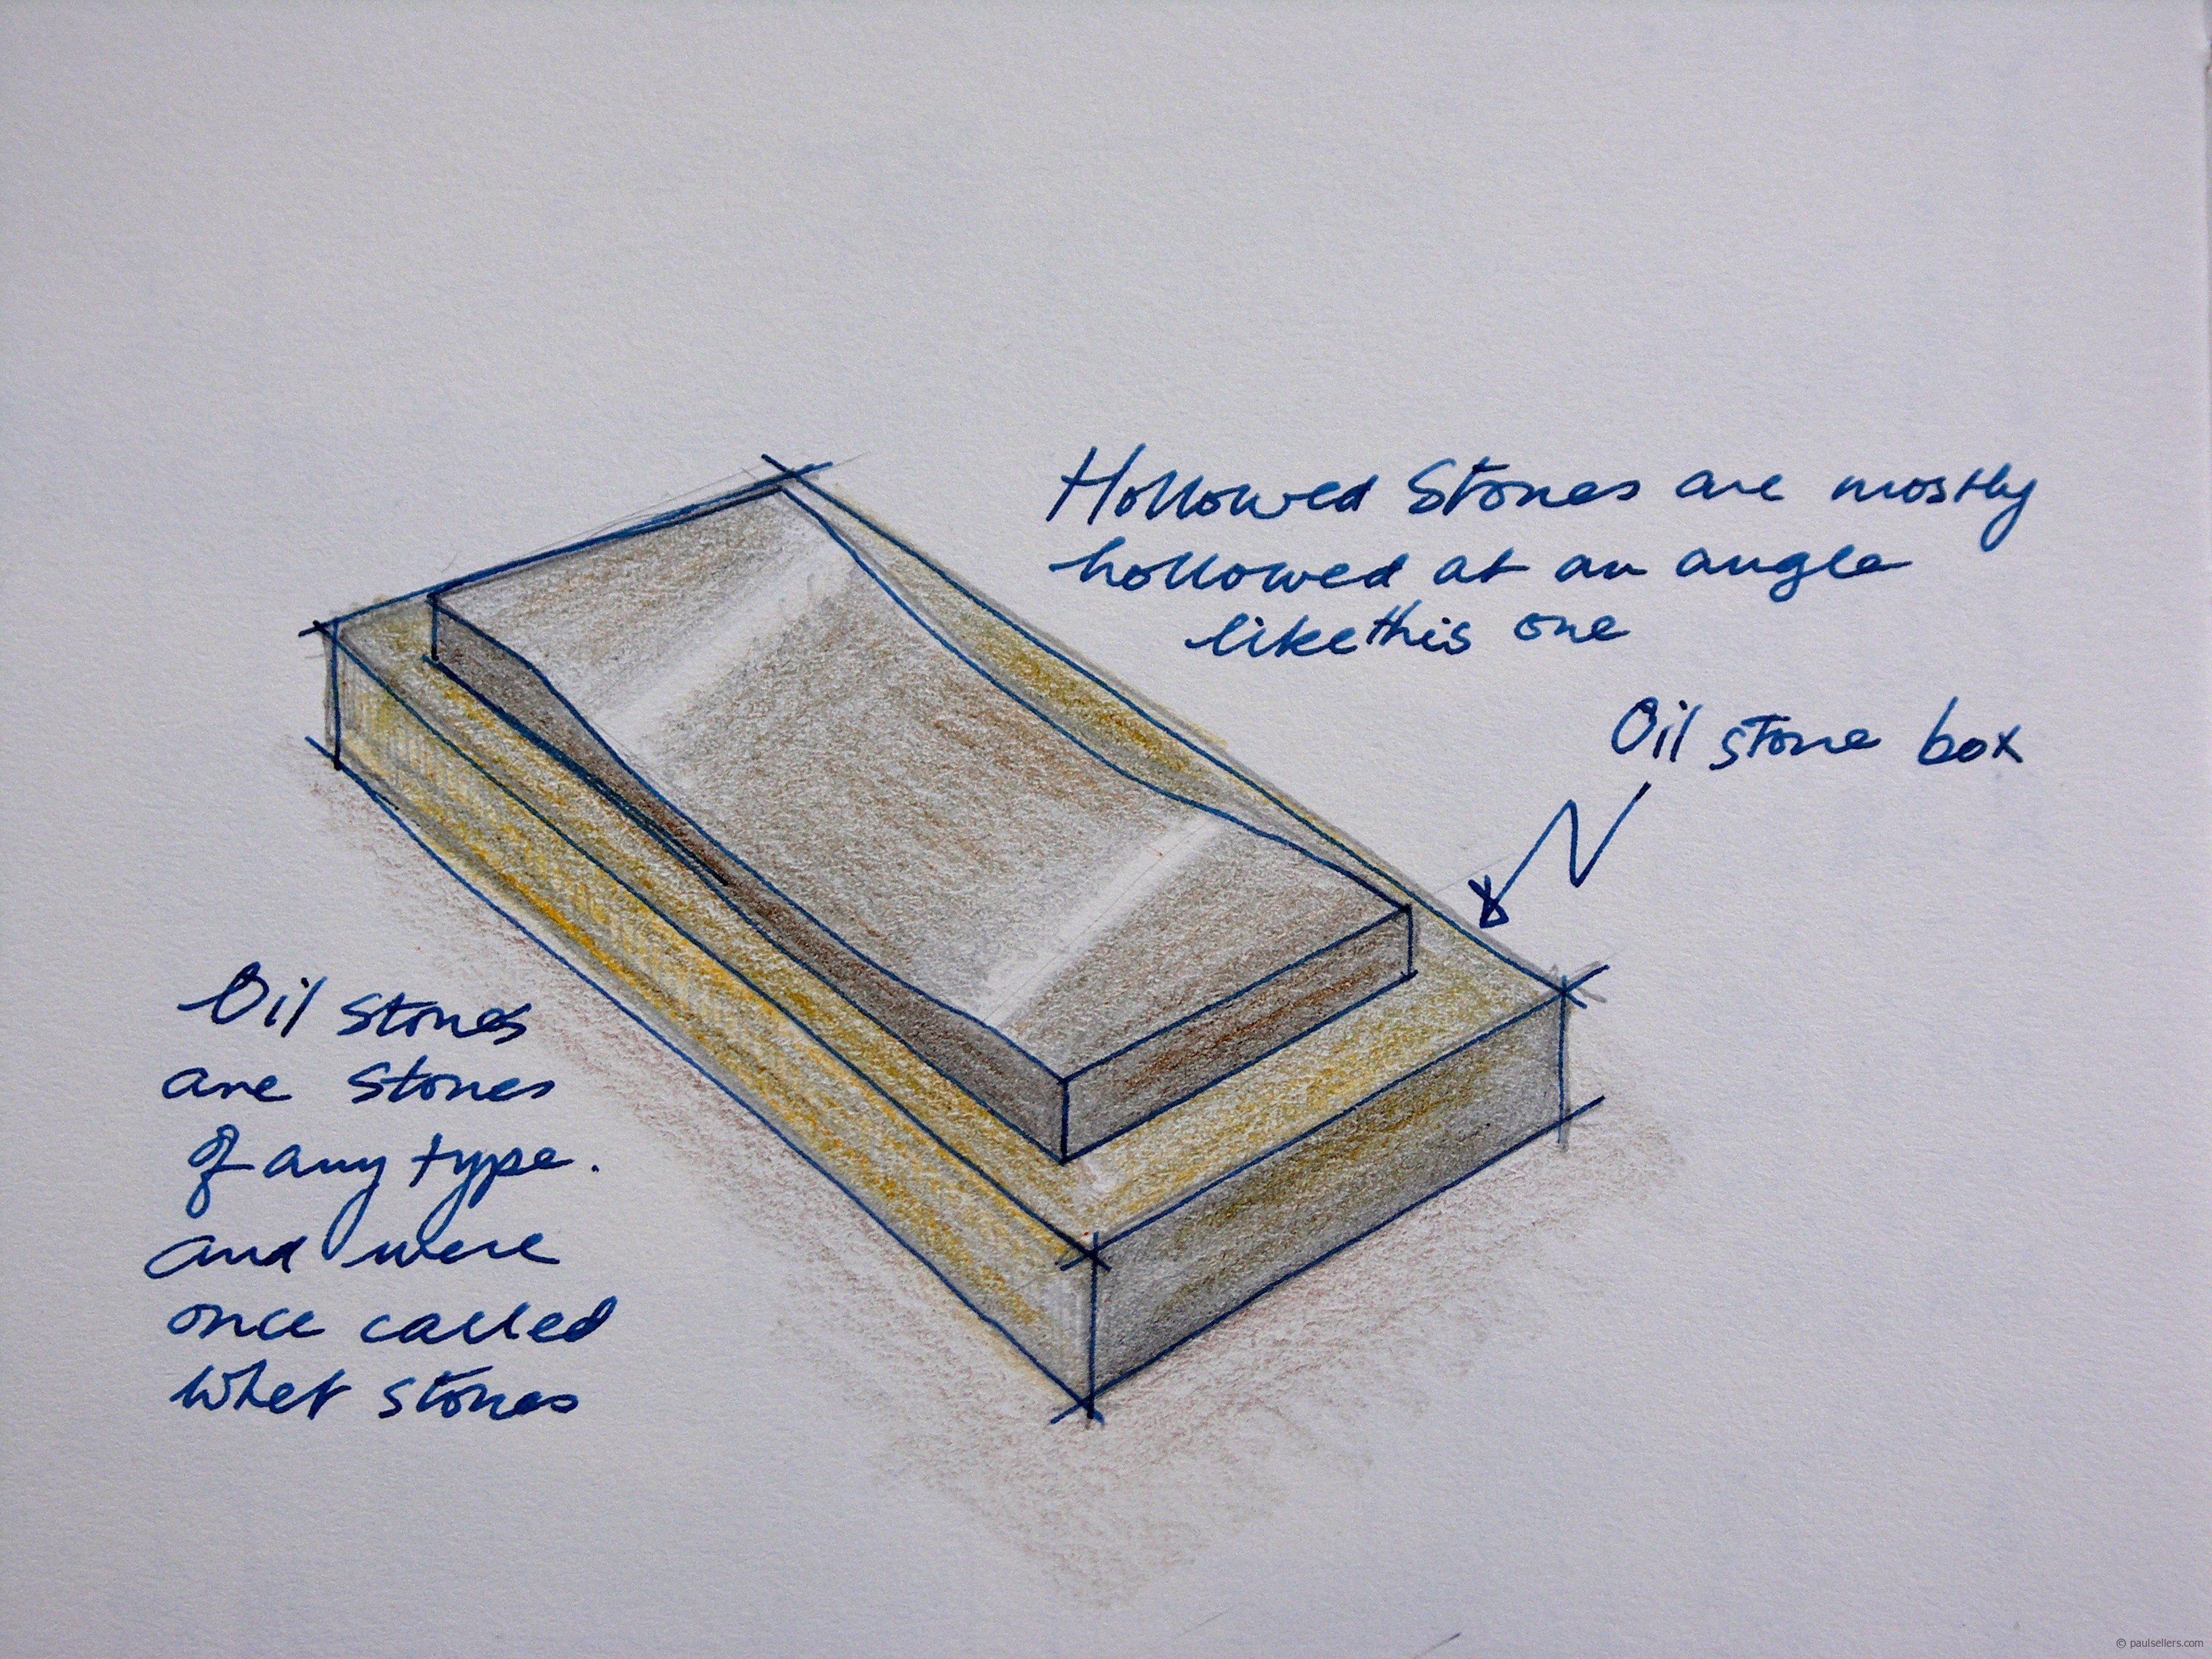 Hollowed Stones are mostly
hollowed at an angle
like this one
Oil stone box
Oil stones
are stones
of any type.
and were
once called
whet stones
© paulsellers.com